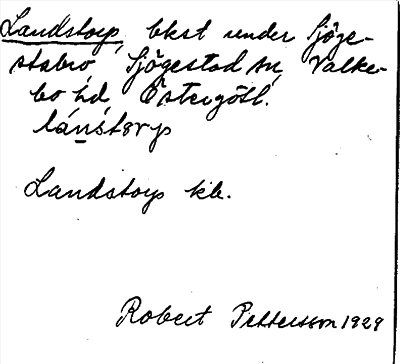 Landstorp, bkst under Sjöge-
stabro, Sjögestad sn, Valke-
bo hd, Östergötl.
lánstǝrp
Landstorp kb.
Robert Pettersson 1929